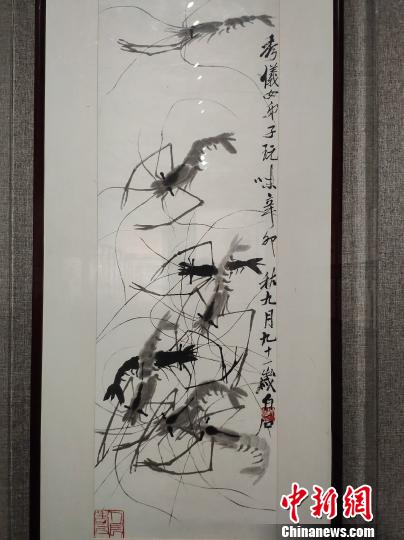 秀儀女弟子玩味辛卯秋九月九十一歲白石
中新网
Chinanews.com